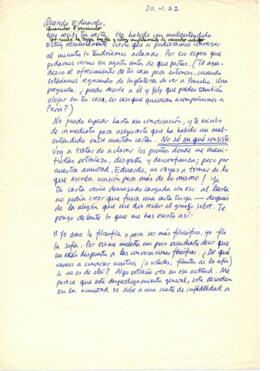 20.VI.72
Querido Eduardo,
hoy recibí tu carta. Ha habido un malentendido
Estoy seguro que si pudiéramos conversar
al minuto lo tendríamos aclarado. Por eso espero que
podamos vernos en agosto antes de que partan. (Te agra-
dezco el ofrecimiento de tu casa para entonces, cuando
estaremos regresando de Inglaterra de ver a Francis. Una
pregunta: ¿puedo decir a él y Joly que pueden también
alojar en tu casa, en caso que quisieran acompañarnos a
París?)
No puedo esperar hasta esa conversación, y te escribo
de inmediato para asegurarte que ha habido un mal-
entendido entre nuestras cartas. No sé en qué consiste.
Voy a tratar de aclarar los puntos donde me mani-
fiestas extrañeza, disgusto y desconfianza; pero por
nuestra amistad, Eduardo, no vayas a tomar de lo
que escriba ocasión para más de lo mismo!
Tu carta venía demasiado cargada con eso: al leerla
no podía creer que fuera una carta tuya — después
de la alegría que me dio recibir el sobre. Te
pongo delante lo que me has escrito así:
Yo amo la filosofía o para ser más filosófico, yo fi
lo la sofía. Por eso me molesta un poco escucharte decir que
no estás dispuesto a las conversaciones filosóficas. ¿De qué
vamos a conversar nosotros (o ustedes, filentes de la sofía)
si no es de ella? Algo extraño veo en esa actitud. Me
parece que este desperdigamiento general, este desorden
en la amistad se debe a una suerte de infidelidad a